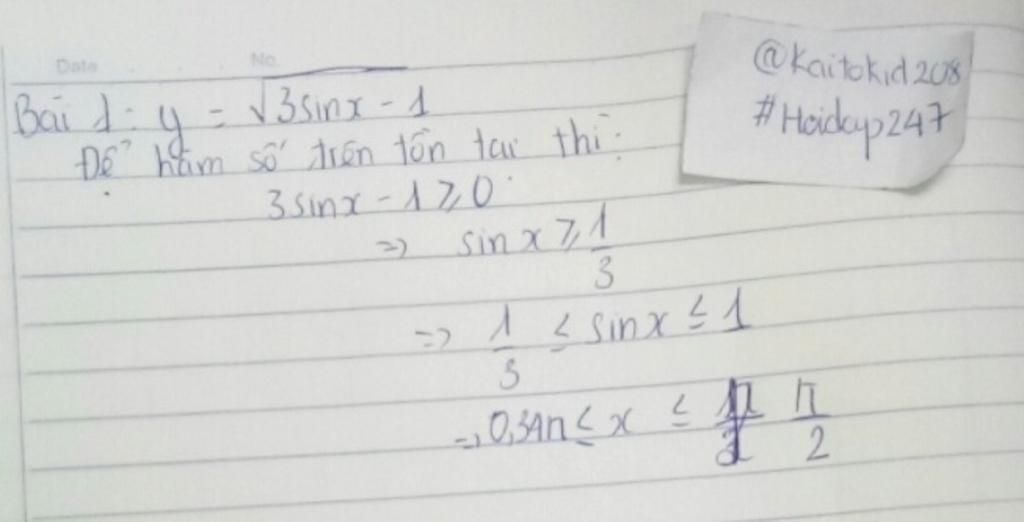 Date No.
Bài 1: y = √3sinx - 1
Để hàm số trên tồn tại thì:
3sinx - 1 ≥ 0
=> sin x ≥ 1/3
=> 1/3 ≤ sinx ≤ 1
=> 0,34π ≤ x ≤ π/2
@Kaitokid208
#Hoidap247